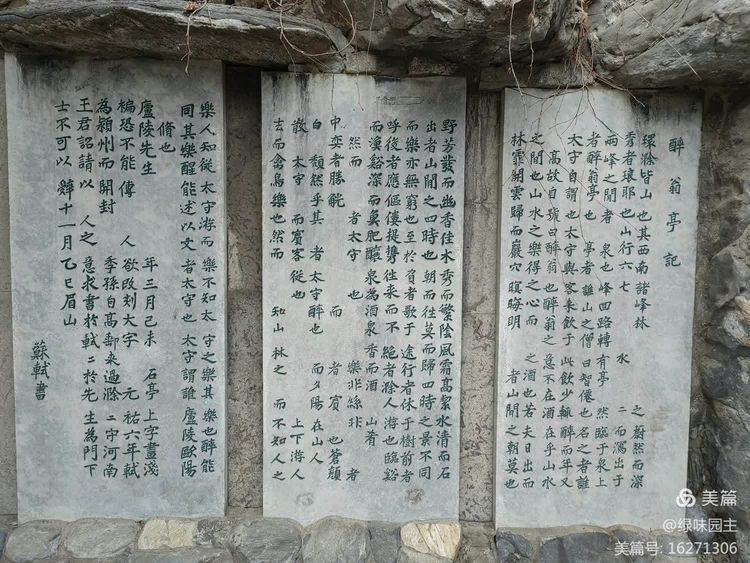 醉翁亭記
環滁皆山也其西南諸峰林 之蔚然而深
秀者琅耶也山行六七 水 二而瀉出于
兩峰之間者 泉也峰回路轉有亭 然臨于泉上
者醉翁亭也 亭者誰山之僧曰智僊也名之者誰
太守自謂也太守與客來飲于此飲少輒醉而年又
高故自號曰醉翁也醉翁之意不在酒在乎山水
之間也山水之樂得之心而 之酒也若夫日出而
林霏開雲歸而巖穴暝晦明 者山間之朝莫也
野芳發而幽香佳木秀而繁陰風霜高絜水清而石
出者山間之四時也朝而往莫而歸四時之景不同
而樂亦無窮也至於負者歌于途行者休于樹前者
呼後者應傴僂提攜往來而不絕者滁人游也臨谿
而漁谿深而魚肥釀泉為酒泉香而酒 山肴
然而 者太守 也 樂非絲非 者
中奕者勝觥 而 者賓 也蒼顏
白 頹然乎其 者太守醉也 而夕陽在山人
散 太守 而賓客從也 上下游人
去而禽鳥樂也然而 知山林之 而不知人之
樂人知從太守游而樂不知太守之樂其樂也醉能
同其樂醒能述以文者太守也太守謂誰廬陵歐陽
脩也
廬陵先生 年三月己未 石亭上字畫淺
褊恐不能傳 人欲改刻大字 元祐六年軾
為潁州而開封 季孫自高郵來過滁 二守河南
王君詔請以 人之意求書於軾 二於先生為門下
士不可以辭十一月乙巳眉山
蘇軾書
美篇
@绿味园主
美篇号: 16271306